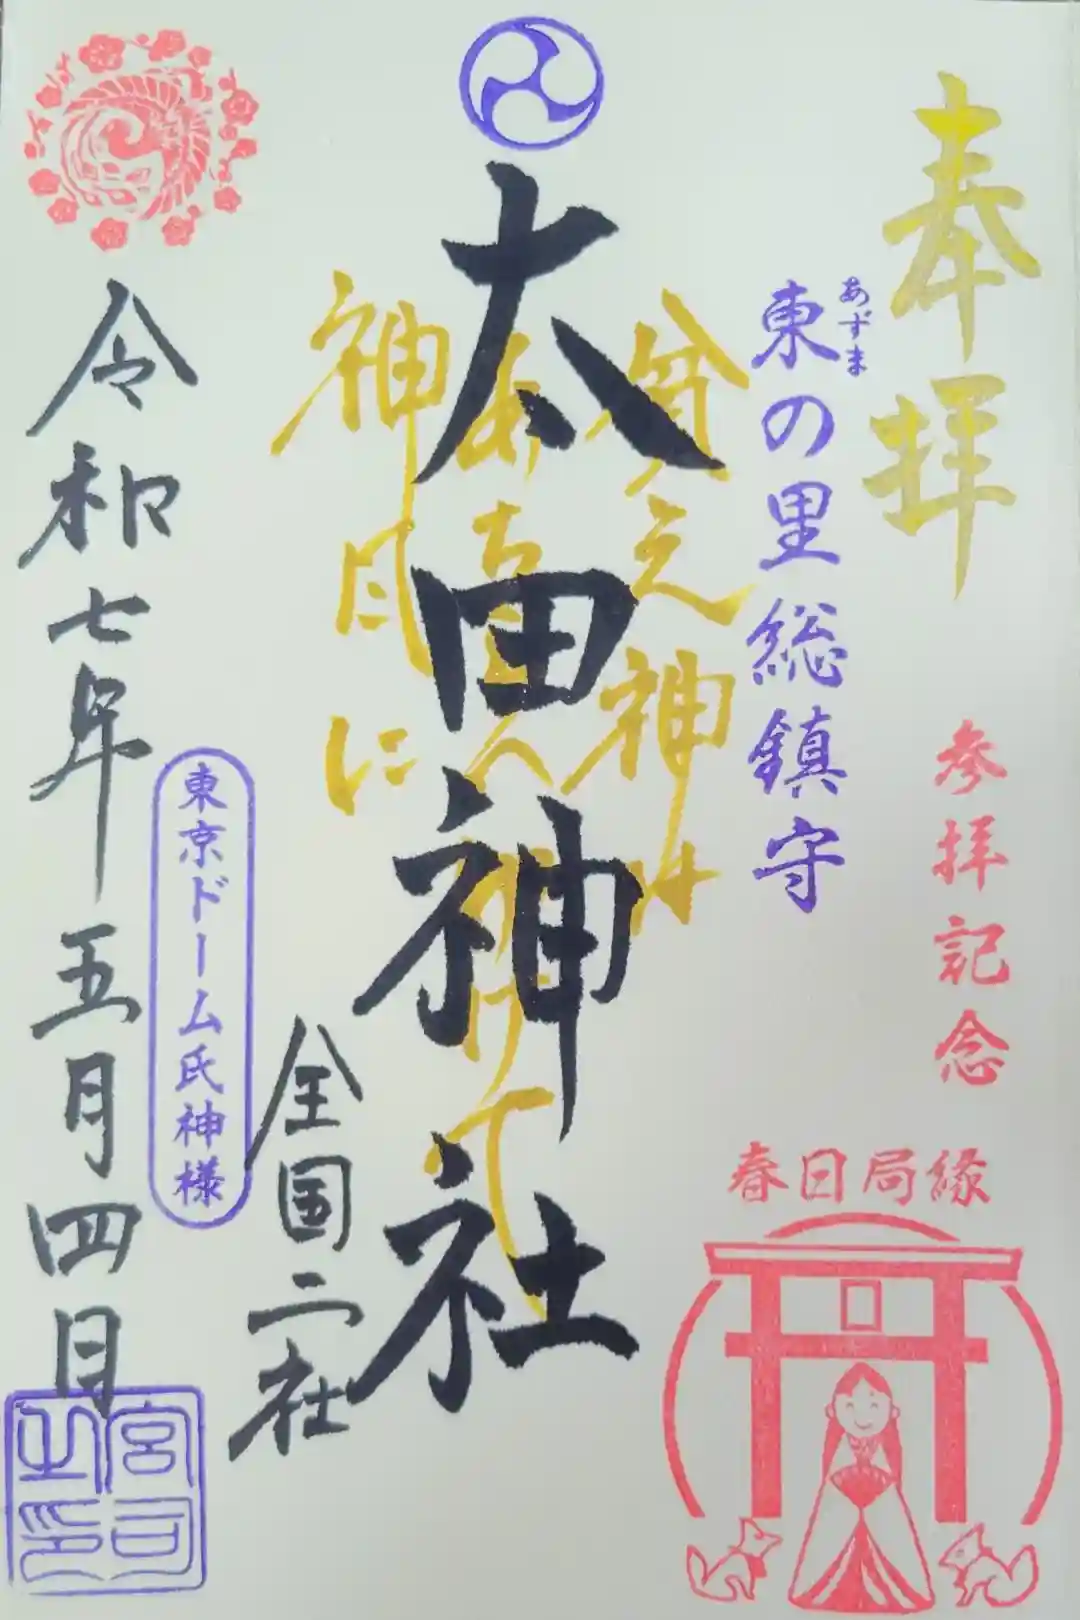 奉拝
東の里総鎮守
あずま
参拝記念
春日局縁
太田神社
貧乏神は
あちらへ
避けて
神風に
全国二社
東京ドーム氏神様
令和七年五月四日
宮司之印